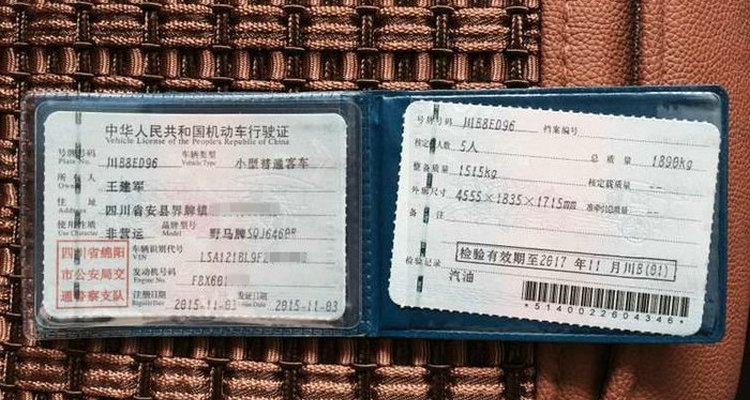 中华人民共和国机动车行驶证
Vehicle License of the People's Republic of China
号牌号码 川B8ED96 车辆类型 小型普通客车
Plate No. Vehicle Type
所有人 王建军
Owner
住址 四川省安县界牌镇
Address
使用性质 非营运 品牌型号 野马牌SQJ6460B
Use Character Model
四川省绵阳
市公安局交
通警察支队
车辆识别代号 LSA121BL9F2
VIN
发动机号码 FBX601
Engine No.
注册日期 2015-11-03 发证日期 2015-11-03
Register Date Issue Date
号牌号码 川B8ED96 档案编号
核定载人数 5人 总质量 1890kg
整备质量 1515kg 核定载质量 --
外廓尺寸 4555×1835×1715mm 准牵引总质量 --
备注
检验有效期至2017年11月川B(01)
检验记录
汽油
*5140022604346*